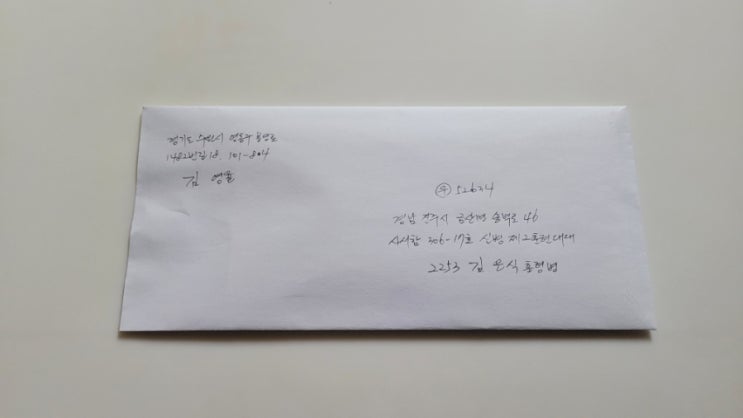 경기도 수원시 영통구 봉영로
1482번길 18. 101-804
김 영울
㉾ 52634
경남 진주시 금산면 송백로 46
사서함 306-17호 신병 제2훈련대대
2253 김 은식 훈련병